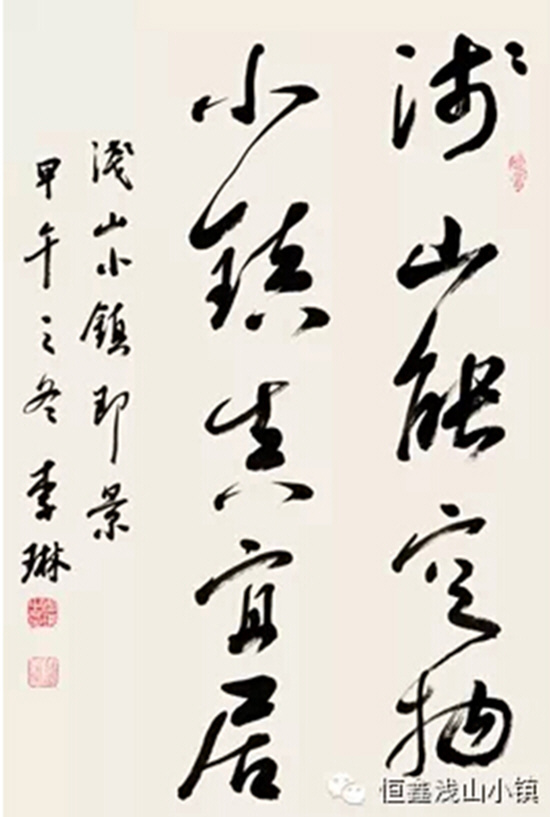 浅山能定物
小鎮真宜居
淺山小鎮即景
甲午之冬 李琳
恒鑫浅山小镇